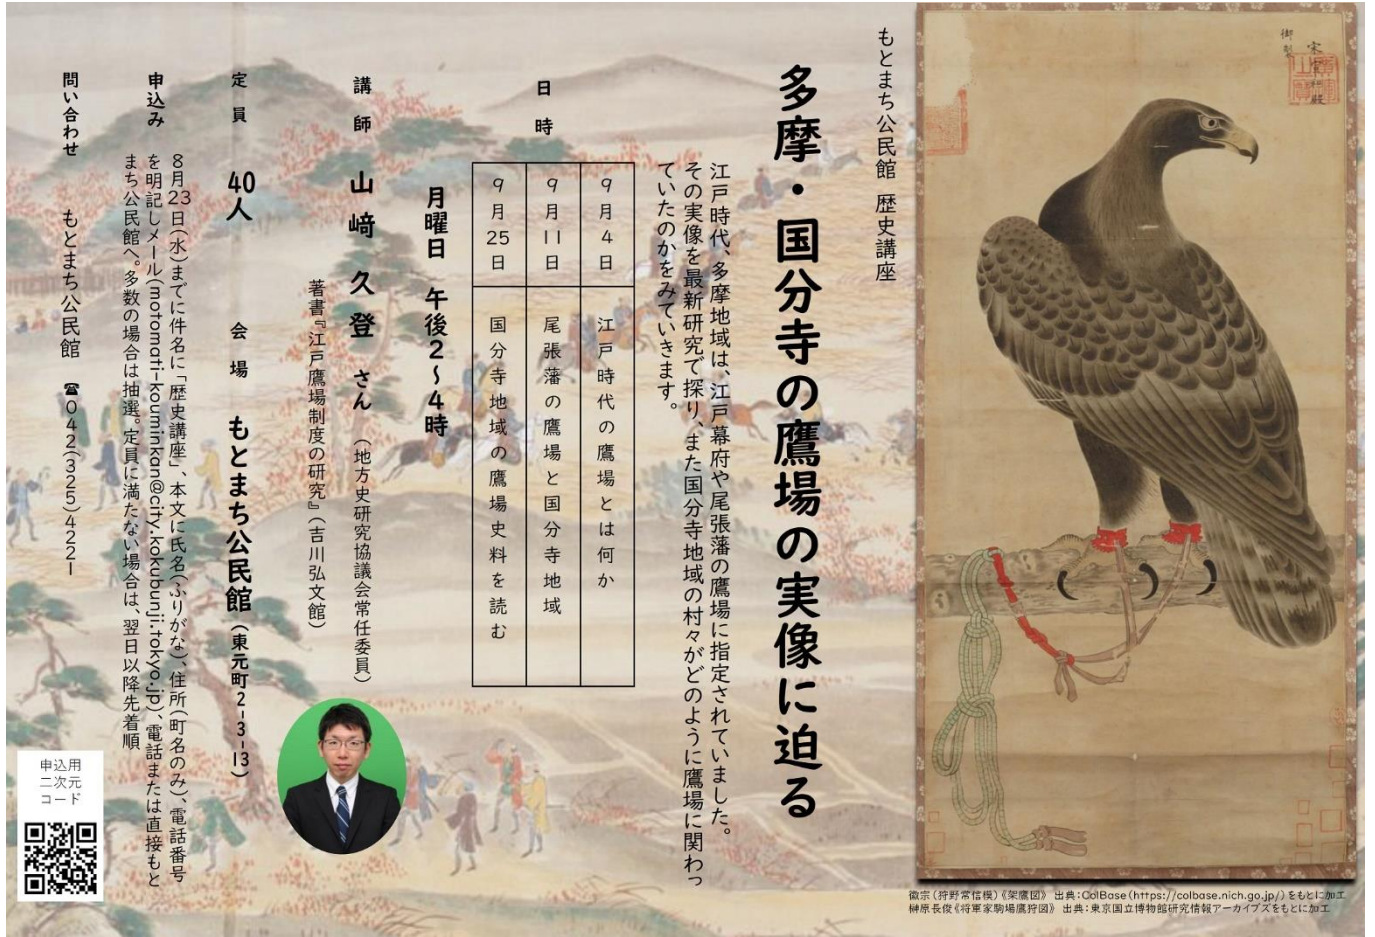 もとまち公民館 歴史講座
多摩・国分寺の鷹場の実像に迫る
江戸時代、多摩地域は、江戸幕府や尾張藩の鷹場に指定されていました。
その実像を最新研究で探り、また国分寺地域の村々がどのように鷹場に関わっ
ていたのかをみていきます。
日時
9月4日 江戸時代の鷹場とは何か
9月11日 尾張藩の鷹場と国分寺地域
9月25日 国分寺地域の鷹場史料を読む
月曜日 午後2~4時
講師 山﨑 久登 さん (地方史研究協議会常任委員)
著書『江戸鷹場制度の研究』(吉川弘文館)
定員 40人 会場 もとまち公民館(東元町2-3-13)
申込み 8月23日(水)までに件名に「歴史講座」、本文に氏名(ふりがな)、住所(町名のみ)、電話番号
を明記しメール(motomati-kouminkan@city.kokubunji.tokyo.jp)、電話または直接もと
まち公民館へ。多数の場合は抽選。定員に満たない場合は、翌日以降先着順
問い合わせ もとまち公民館 ☎042(325)4221
申込用
二次元
コード
徽宗(狩野常信模)《架鷹図》 出典:ColBase(https://colbase.nich.go.jp/)をもとに加工
榊原長俊《将軍家駒場鷹狩図》 出典:東京国立博物館研究情報アーカイブズをもとに加工